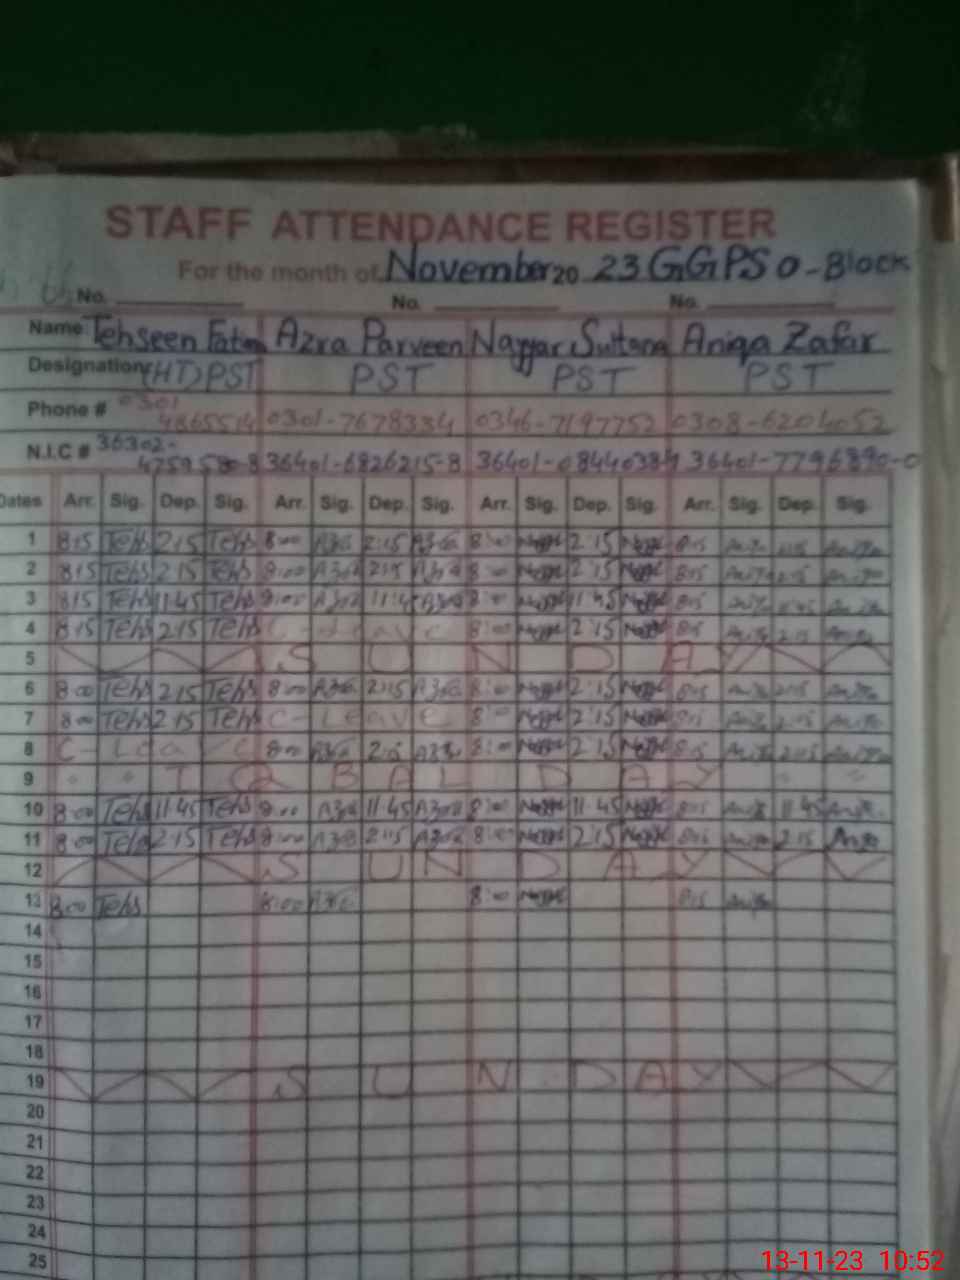 STAFF ATTENDANCE REGISTER
For the month of November 20 23 GGPS O-Block
No. No. No.
Name Tehseen Fatima Azra Parveen Nayyar Sultana Aniqa Zafar
Designation (HT) PST PST PST PST
Phone # 0301
4865514 0301-7678334 0346-7197752 0308-6204052
N.I.C # 36302-
4759580-8 36401-6826215-8 36401-0844038-4 36401-7796890-0
Dates Arr. Sig. Dep. Sig. Arr. Sig. Dep. Sig. Arr. Sig. Dep. Sig. Arr. Sig. Dep. Sig.
1 8:15 Tehs 2:15 Tehs 8:00 Azra 2:15 Azra 8:00 2:15 8:15 Aniqa 2:15 Aniqa
2 8:15 Tehs 2:15 Tehs 8:00 Azra 2:15 Azra 8:00 2:15 8:15 Aniqa 2:15 Aniqa
3 8:15 Tehs 11:45 Tehs 8:00 Azra 11:45 Azra 8:00 11:45 8:15 Aniqa 11:45 Aniqa
4 8:15 Tehs 2:15 Tehs C-Leave 8:00 2:15 8:15 Aniqa 2:15 Aniqa
5 SUNDAY
6 8:00 Tehs 2:15 Tehs 8:00 Azra 2:15 Azra 8:00 2:15 8:15 Aniqa 2:15 Aniqa
7 8:00 Tehs 2:15 Tehs C-Leave 8:00 2:15 8:15 Aniqa 2:15 Aniqa
8 C-Leave 8:00 Azra 2:15 Azra 8:00 2:15 8:15 Aniqa 2:15 Aniqa
9 IQBAL DAY
10 8:00 Tehs 11:45 Tehs 8:00 Azra 11:45 Azra 8:00 11:45 8:15 Aniqa 11:45 Aniqa
11 8:00 Tehs 2:15 Tehs 8:00 Azra 2:15 Azra 8:00 2:15 8:15 Aniqa 2:15 Aniqa
12 SUNDAY
13 8:00 Tehs 8:00 Azra 8:00 8:15 Aniqa
14
15
16
17
18
19 SUNDAY
20
21
22
23
24
25
13-11-23 10:52